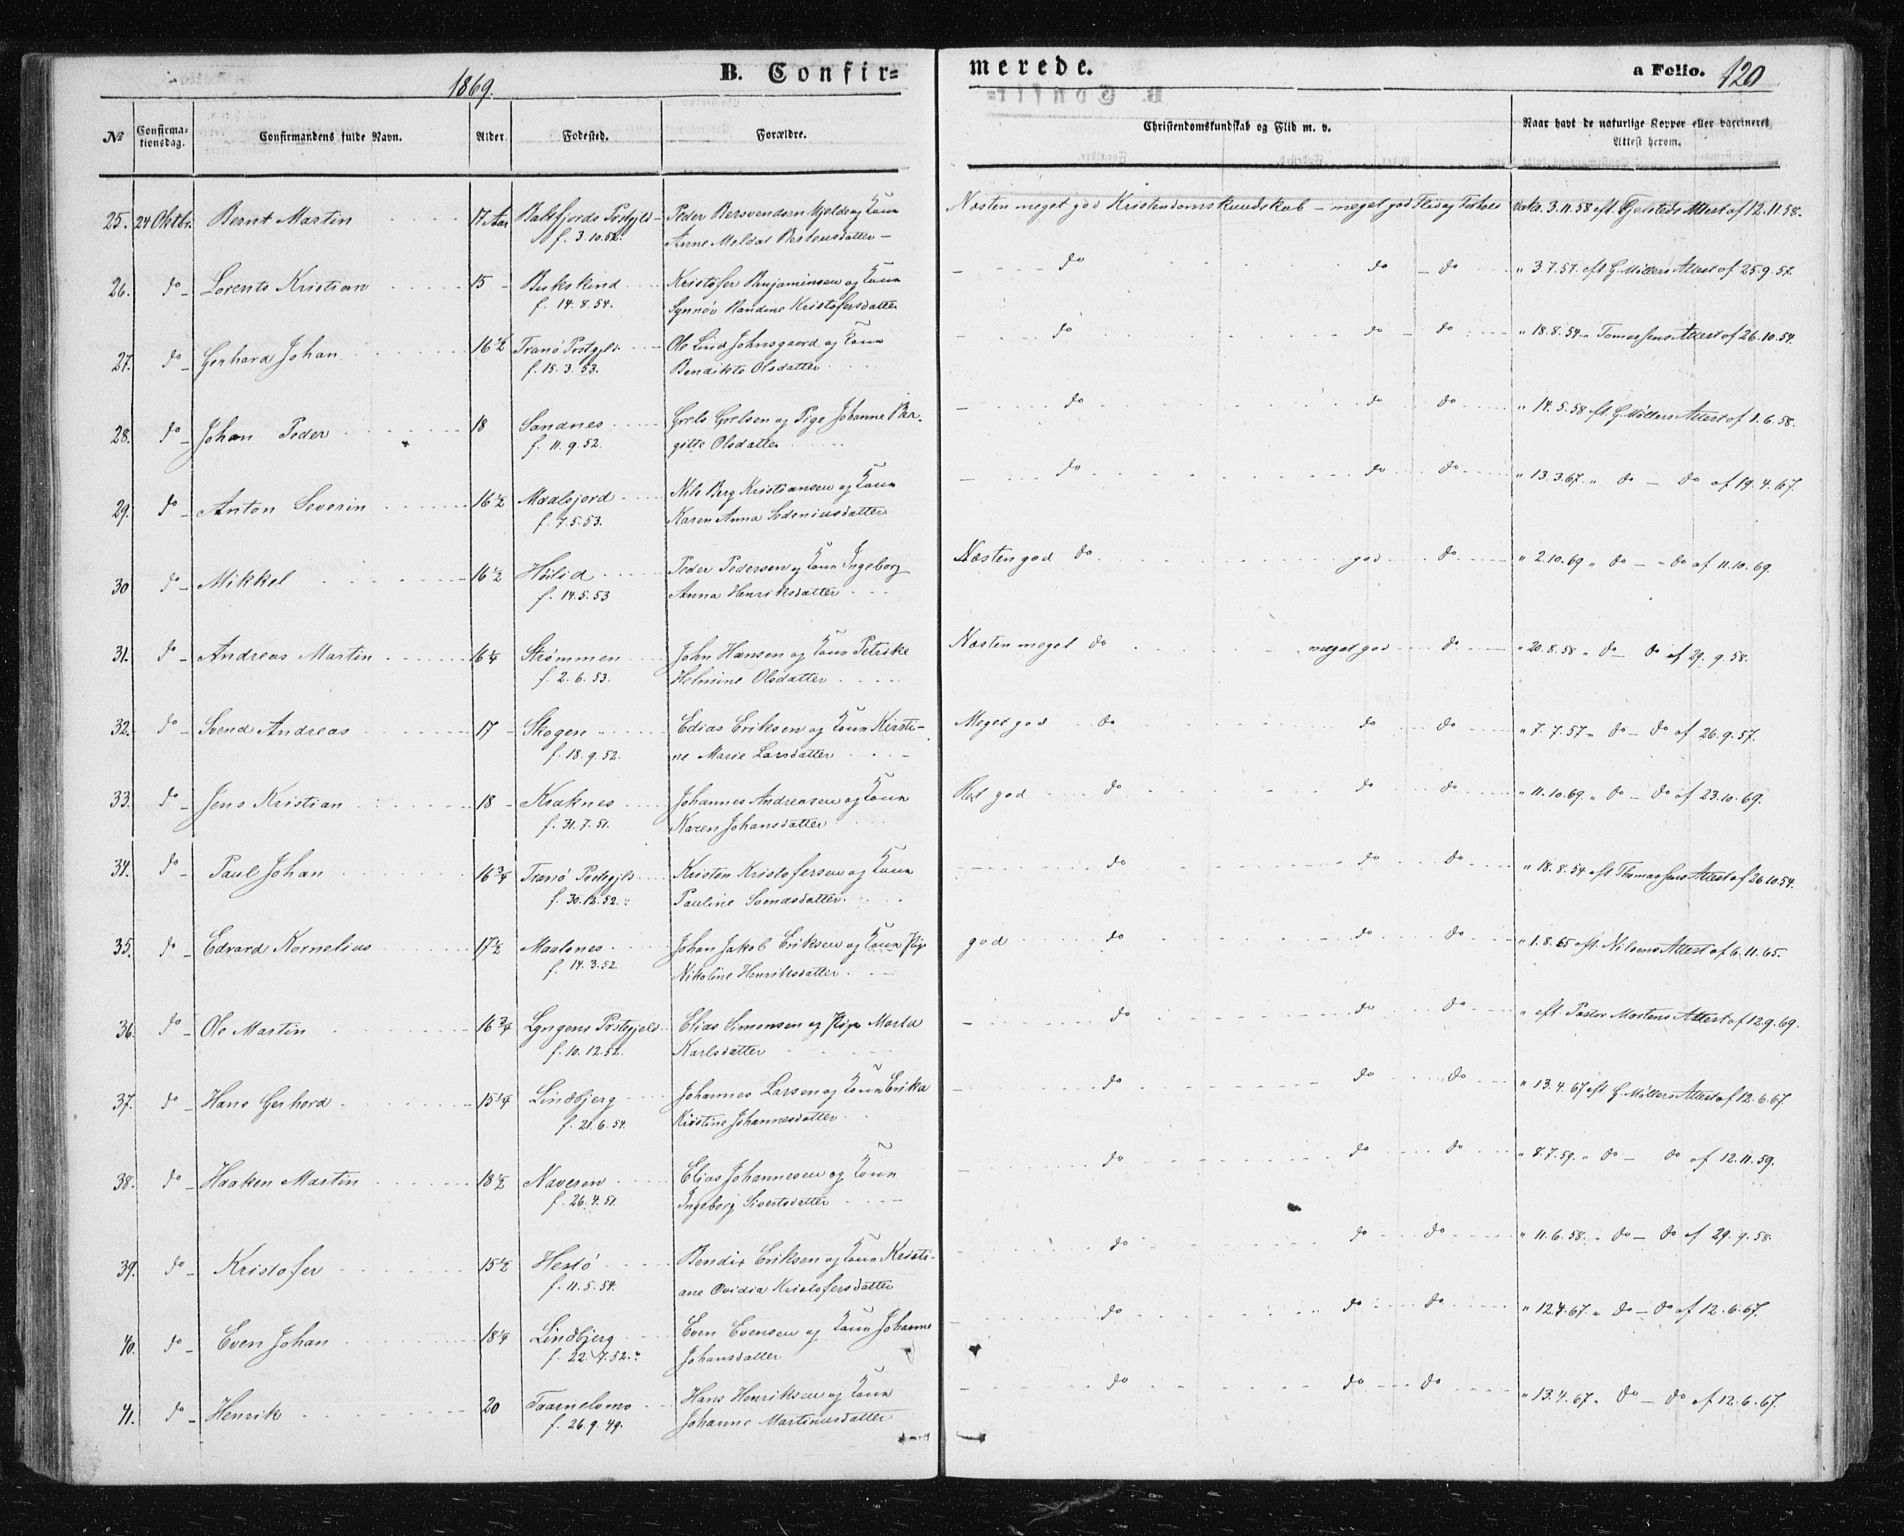 1869.
B. Confir=
merede.
a Folio. 120
No
Confirma-
tionsdag.
Confirmandens fulde Navn.
Alder.
Fødested.
Forældre.
Christendomskundskab og Flid m. v.
Naar havt de naturlige Kopper eller vaccineret,
Attest herom.
25. 24 Oktbr. Bernt Martin 17 Aar Balsfjords Prstgjld Peder Bersvendsen og Kone Næsten meget god Kristendomskundskab – meget god Flid og Forhold vakc. 3.11.58 eft. Attest af 12.11.58.
f. 3.10.52. Anne Berteusdatter –
26. do – Lorents Kristian 15 – Bukskind Kristofer Benjaminsen og Kone do do – do " 3.7.57 eft G. Möllers Attest af 25.9.57.
f. 14.8.54. Synnöv Randine Kristofersdatter
27. do – Gerhard Johan 16½ Tranö Prstgjld. Ole Lind Johnsgaard og Kone do do – do " 18.8.54 " Tomassens Attest af 26.10.54.
f. 15.3.53. Bendikte Olsdatter
28. do – Johan Peder 18 Sandnes Grels Grelsen og Pige Johanne Ber- do do do " 14.5.58 eft G. Möllers Attest af 1.6.58.
f. 11.9.52. gitte Olsdatter
29. do – Anton Severin 16½ Maalsjord Nils Berg Kristiansen og Kone do do do " 13.3.67. " do – do af 14.4.67.
f. 7.5.53. Karen Anna Sedeniusdatter
30 do – Mikkel 16½ Höilid Peder Pedersen og Kone Ingeborg Næsten god do god do " 2.10.69 " do – do af 11.10.69.
f. 14.5.53 Anna Henriksdatter
31. do – Andreas Martin 16¼ Strømmen John Hansen og Kone Petrike Næsten meget do meget god do " 20.8.58 " do – do af 29.9.58.
f. 2.6.53. Helmine Olsdatter
32. do – Svend Andreas 17 – Skogen Edias Eriksen og Kone Kirsti- Meget god do do do " 7.7.57 " do – do af 26.9.57.
f. 18.9.52. ne Marie Larsdatter
33. do – Jens Kristian 18 – Kraknes Johannes Andreasen og Kone god do do do " 11.10.69. " do – do af 23.10.69.
f. 31.7.51. Karen Johansdatter
34. do – Paul Johan 16¾ Tranö Prstgjld Kristen Kristofersen og Kone do do do " 18.8.54 eft Thomassens Attest af 26.10.54.
f. 30.12.52. Pauline Svendsdatter.
35. do – Edvard Kornelius 17½ Maalsnes Johan Jakob Eriksen og Kone god do do do " 1.8.65 eft. Nilsens Attest af 6.11.65.
f. 14.3.52 Nikoline Henriksdatter
36. do – Ole Martin 16¾ Lyngens Prstgjeld Elias Simonsen og Pige Marta do do do " eft. Pastor Mortens Attest af 12.9.69.
f. 10.12.52. Karlsdatter
37. do – Hans Gerhard 15¼ Lindbjerg Johannes Larsen og Kone Erika do do do " 13.4.67 eft G. Möllers Attest af 12.6.67.
f. 21.6.54. Kirstine Johannesdatter
38. do – Haaken Martin 18½ Naveren Elias Johannesen og Kone do do do " 8.7.59. " do – do af 12.11.59.
f. 26.4.51. Ingeborg Sivertsdatter
39. do – Kristofer 15½ Hestö Bendix Eriksen og Kone Kristi- do do do " 11.6.58. " do – do af 29.9.58.
f. 11.5.54. ane Ovidia Kristofersdatter
40. do – Even Johan 18¼ Lindbjerg Even Evensen og Kone Johanne do do do " 12.4.67. " do – do af 12.6.67.
f. 22.7.52. Johansdatter
41. do – Henrik 20 Taarnelvmo Hans Henriksen og Kone do do do " 13.4.67 " do – do af 12.6.67.
f. 26.9.49. Johanne Martinusdatter